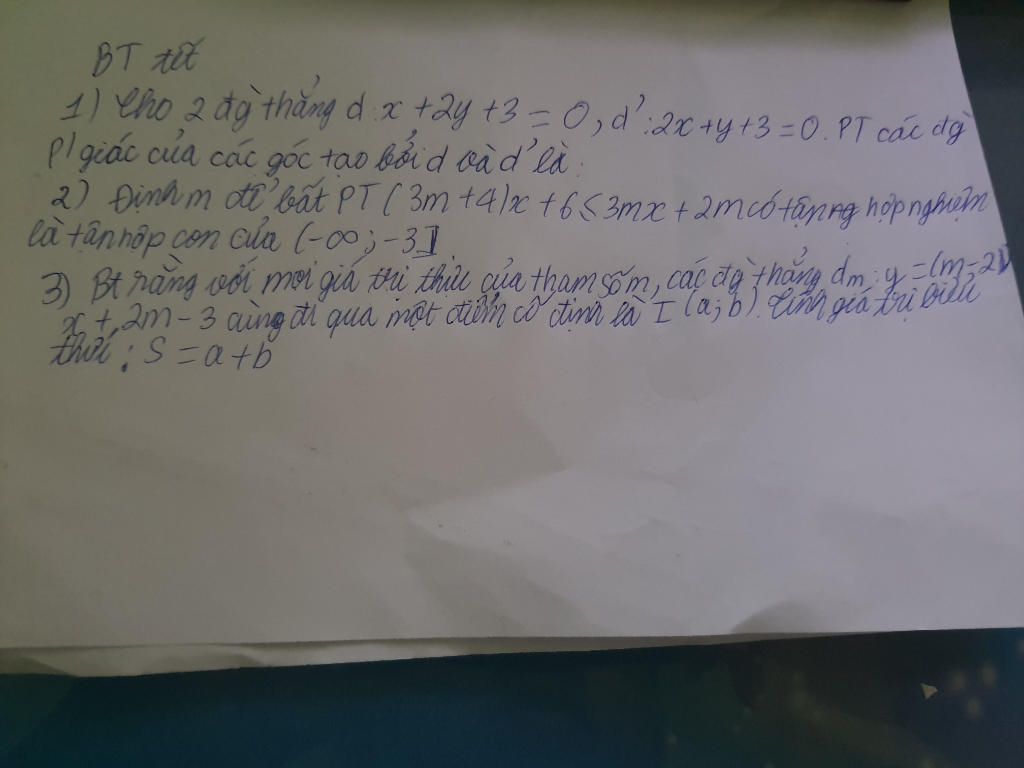 BT tết
1) Cho 2 đg̀ thẳng d: x + 2y + 3 = 0, d': 2x + y + 3 = 0. PT các đg̀
p/ giác của các góc tạo bởi d và d' là:
2) Định m để bất PT (3m + 4)x + 6 ≤ 3mx + 2m có tập hợp nghiệm
là tập hợp con của (-∞; -3]
3) Bt rằng với mọi giá trị thực của tham số m, các đg̀ thẳng dm: y = (m - 2)
x + 2m - 3 cùng đi qua một điểm cố định là I (a; b). Tính giá trị biểu
thức: S = a + b